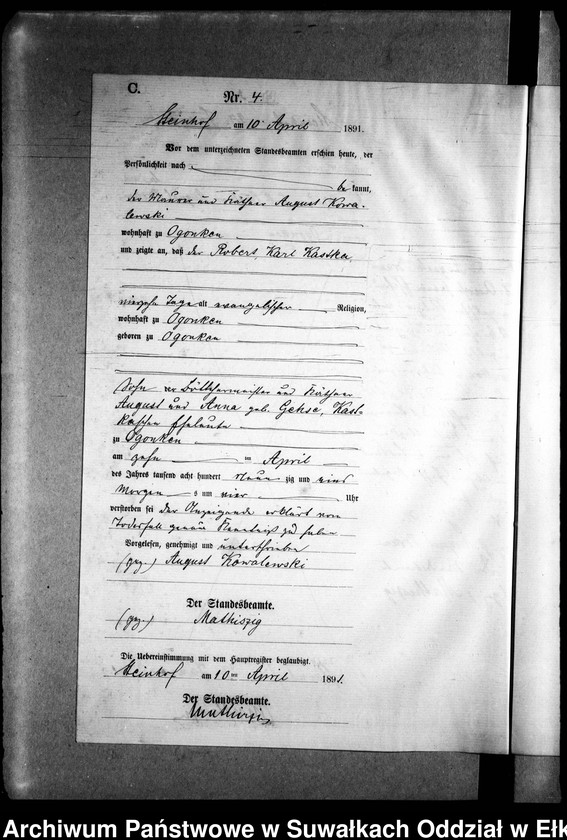 C.
Nr. 4.
Steinhof am 10. April 1891.
Vor dem unterzeichneten Standesbeamten erschien heute, der
Persönlichkeit nach
be kannt,
der Maurer und Käthner August Kowa-
lewski
wohnhaft zu Ogonken
und zeigte an, daß der Robert, Karl Kastka,
vierzehn Tage alt evangelischer Religion,
wohnhaft zu Ogonken
geboren zu Ogonken
Sohn der Böttchermeister und Käthner
August und Anna geb. Gehse, Kast-
kaschen Eheleute
zu Ogonken
am zehn ten April
des Jahres tausend acht hundert neun zig und eins
Morgen s um vier Uhr
verstorben sei der Anzeigende erklärt vom
Todesfall genaue Kenntniß zu haben
Vorgelesen, genehmigt und unterschrieben
(gez.) August Kowalewski
Der Standesbeamte.
(gez.) Mathiszig
Die Uebereinstimmung mit dem Hauptregister beglaubigt.
Steinhof am 10 ten April 1891.
Der Standesbeamte.
Mathiszig
Archiwum Państwowe w Suwałkach Oddział w Ełk